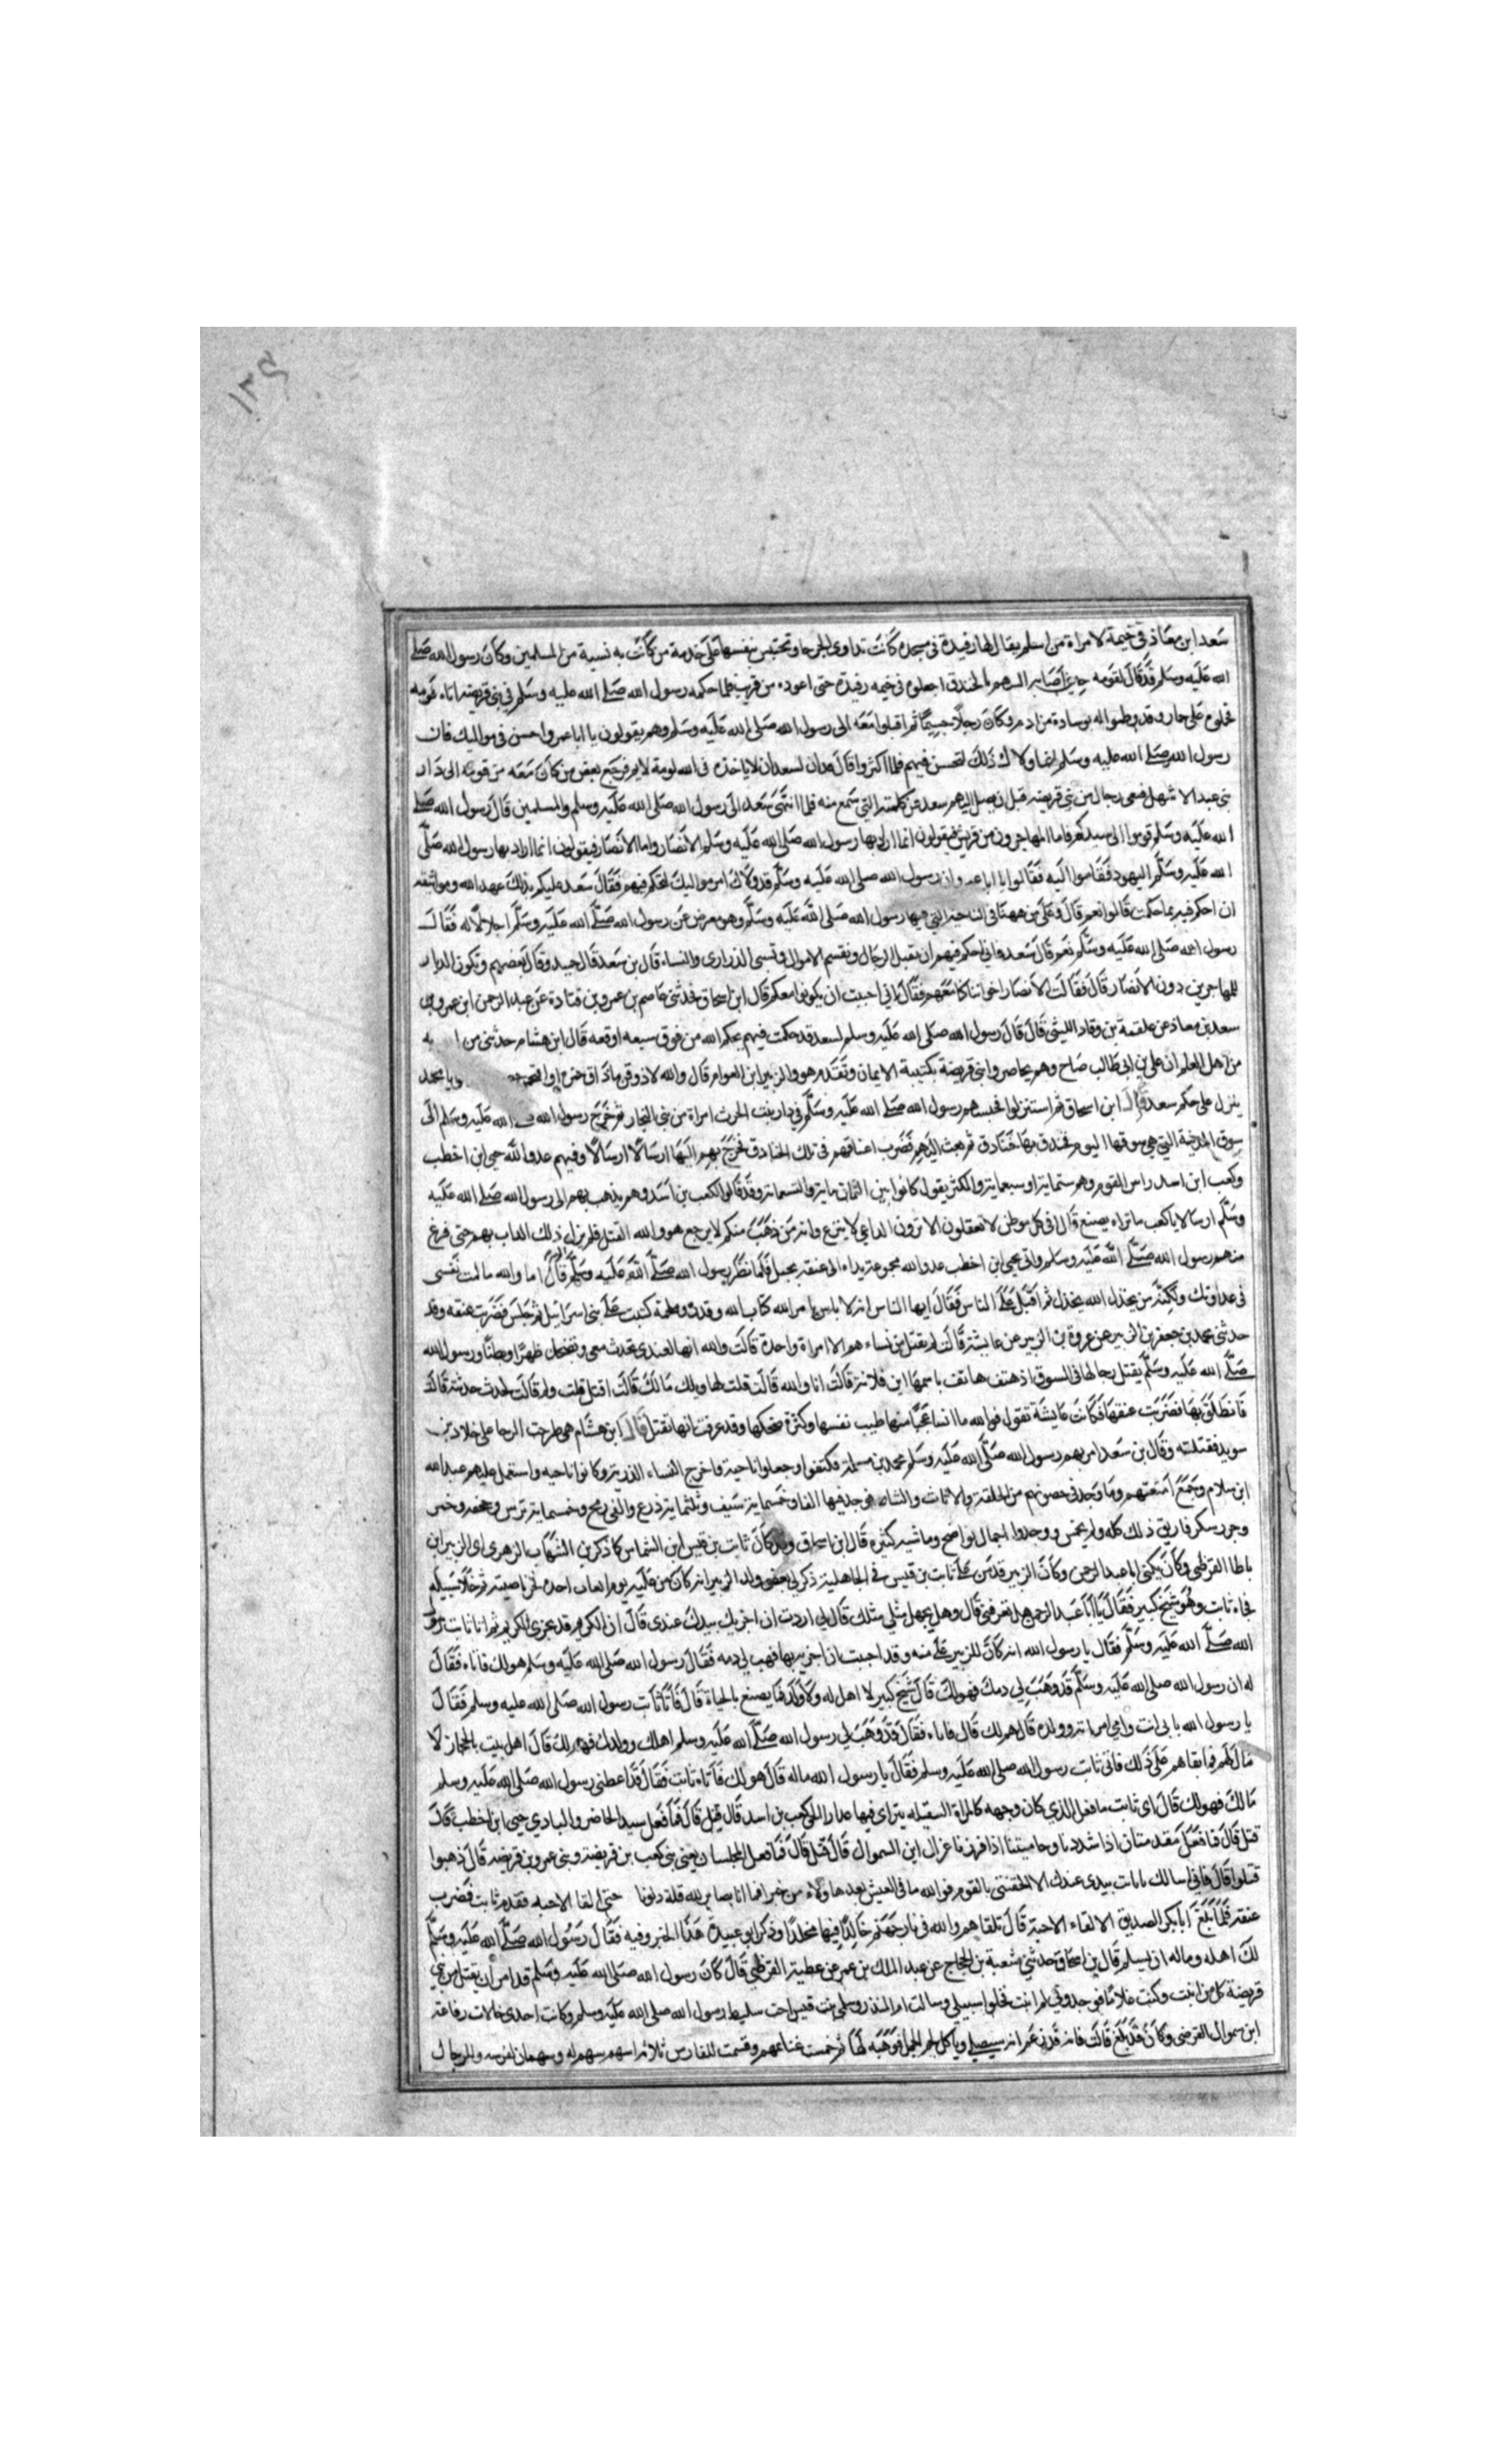 سعد ابن معاذ في خيمة لامراة من اسلم يقال لها رفيدة في مسجده كانت تداوى الجرحا وتحتبس بنفسها على خدمة من كانت به نسبة من المسلمين وكان رسول الله صلى
الله عليه وسلم قد قال لقومه حين اصابه السهم بالخندق اجعلوه في خيمه رفيدة حتى اعوده من قريب فلما حكمه رسول الله صلى الله عليه وسلم في بني قريضه اتاه قومه
فحملوه على حمار وقد وطوا له بوسادة من ادم وكان رجلا جسيما ثم اقبلوا معه الى رسول الله صلى الله عليه وسلم وهم يقولون يا ابا عمرو احسن في مواليك فان
رسول الله صلى الله عليه وسلم انما ولاك ذلك لتحسن فيهم فلما اكثروا قال لسعد ان لا ياخذه في الله لومة لايم فرجع بعض من كان معه من قومه الى دار
بني عبد الاشهل فنعى رجال بني قريضه قبل ان يصل اليهم سعد عن كلمته التي سمع منه فلما انتهى سعد الى رسول الله صلى الله عليه وسلم والمسلمين قال رسول الله صلى
الله عليه وسلم قوموا الى سيدكم فاما المهاجرون من قريش فيقولون انما اراد بها رسول الله صلى الله عليه وسلم الانصار واما الانصار فيقولون انما اراد بها رسول الله صلى
الله عليه وسلم اليهود فقاموا اليه فقالوا يا ابا عمرو ان رسول الله صلى الله عليه وسلم قد ولاك امر مواليك لتحكم فيهم فقال سعد عليكم بذلك عهد الله وميثاقه
ان احكم فيهم بما حكمت قالوا نعم قال وعلى من ههنا في الناحية التي فيها رسول الله صلى الله عليه وسلم وهو معرض عن رسول الله صلى الله عليه وسلم اجلالا له فقال
رسول الله صلى الله عليه وسلم نعم قال سعد فاني احكم فيهم ان يقتل الرجال وتقسم الاموال وتسبى الذرارى والنساء قال بن سعد قال حميد وقال بعضهم وتكون الديار
للمهاجرين دون الانصار قال فقالت الانصار اخواننا كنا معهم فقال اني احببت ان يكونوا معكم قال ابن اسحاق فحدثني عاصم بن عمرو بن قتادة عن عبد الرحمن ابن عمرو بن
سعد بن معاذ عن علقمة بن وقاد الليثي قال قال رسول الله صلى الله عليه وسلم لسعد قد حكمت فيهم بحكم الله من فوق سبعه ارقعه قال ابن هشام حدثني من به
من اهل العلم ان علي بن ابي طالب صاح وهم يحاصروا بني قريضة بكتيبة الايمان وتقدم هو والزبير ابن العوام قال والله لاذوقن ما ذاق حمزه يا محمد
ينزل على حكم سعد قال ابن اسحاق ثم استنزلوا فحبسهم رسول الله صلى الله عليه وسلم في دار بنت الحرث امراة من بني النجار ثم خرج رسول الله الله عليه وسلم الى
سوق المدينة التي هي سوقها اليوم فخندق بها خنادق ثم بعث اليهم فضرب اعناقهم في تلك الخنادق فخرج بهم اليها ارسالا ارسالا وفيهم عدو الله حيي ابن اخطب
وكعب ابن اسد راس القوم وهم ستماية او سبعماية والمكثر يقول كانوا بين الثمان ماية والتسعماية وقد قالوا لكعب بن اسد وهم يذهب بهم الى رسول الله صلى الله عليه
وسلم ارسالا يا كعب ما تراه يصنع قال افي كل موطن لا تعقلون الا ترون الداعي لا ينزع وانه من ذهب منكم لا يرجع هو والله القتل فلم يزل ذلك الداب بهم حتى فرغ
منهم رسول الله صلى الله عليه وسلم واتي بحيي ابن اخطب عدو الله مجموعة يداه الى عنقه بحبل فلما نظر رسول الله صلى الله عليه وسلم قال اما والله ما لمت نفسي
في عداوتك ولكنه من يخذل الله يخذل ثم اقبل على الناس فقال ايها الناس انه لا باس بامر الله كتاب الله وقدر وملحمة كتبت على بني اسرائيل ثم جلس فضربت عنقه وقد
حدثني محمد بن جعفر بن الزبير عن عروة بن الزبير عن عايشة قالت لم يقتل من نساءهم الا امراة واحدة قالت والله انها لعندي تحدث معي وتضحك ظهرا وبطنا ورسول الله
صلى الله عليه وسلم يقتل رجالها في السوق اذ هتف هاتف باسمها اين فلانة قالت انا والله قالت قلت لها ويلك مالك قالت اقتل قلت ولم قالت لحدث حدثته قالت
فانطلق بها فضربت عنقها فكانت عايشة تقول فوالله ما انسا عجبا منها طيب نفسها وكثرة ضحكها وقد عرفت انها تقتل قال ابن هشام هي طرحت الرحا على خلاد بن
سويد فقتلته وقال بن سعد امر بهم رسول الله صلى الله عليه وسلم محمد بن مسلمة فكتفوا وجعلوا ناحية واخرج النساء الذرية وكانوا ناحيه واستعمل عليهم عبد الله
ابن سلام وجمع امتعتهم وما وجد في حصونهم من الحلقة والاثاث والثياب فوجد فيها الفا وخمسماية سيف وثلثماية درع والفي رمح وخمسماية ترس وجحفه وخمر
وجرر سكر فاريق ذلك كله ولم يخمس ووجدوا اجمال نواضح وماشيه كثيره قال ابن اسحاق وقد كان ثابت بن قيس ابن الشماس كما ذكر بن الشهاب الزهرى اتى الزبير ابن
باطا القرظي وكان يكنى ابا عبد الرحمن وكان الزبير قد من على ثابت بن قيس في الجاهلية ذكر لي بعض ولد الزبير انه كان من عليه يوم بعاث اخذه فجز ناصيته ثم خلا سبيله
فجاءه ثابت وهو شيخ كبير فقال يا ابا عبد الرحمن هل تعرفني قال وهل يجهل مثلي مثلك قال اني اردت ان اجزيك بيدك عندى قال ان الكريم قد يجزى الكريم ثم اتا ثابت رسول
الله صلى الله عليه وسلم فقال يا رسول الله انه كان للزبير على منه وقد احببت ان اجزيه بها فهب لي دمه فقال رسول الله صلى الله عليه وسلم هو لك فاتاه فقال
له ان رسول الله صلى الله عليه وسلم قد وهب لي دمك فهو لك قال شيخ كبير لا اهل له ولا ولد فما يصنع بالحياة قال فاتا ثابت رسول الله صلى الله عليه وسلم فقال
يا رسول الله بابي انت وامي امراته وولده قال هم لك قال فاتاه فقال قد وهب لي رسول الله صلى الله عليه وسلم اهلك وولدك فهم لك قال اهل بيت بالحجاز لا
مال لهم فما بقاهم على ذلك فاتى ثابت رسول الله صلى الله عليه وسلم فقال يا رسول الله ماله قال هو لك فاتاه ثابت فقال قد اعطني رسول الله صلى الله عليه وسلم
مالك فهو لك قال اى ثابت ما فعل الذي كان وجهه كالمراة الصقيله يتراى فيها عذارا الحي كعب بن اسد قال قتل قال فما فعل سيد الحاضر والبادي حيي ابن اخطب قال
قتل قال فما فعل مقدمتنا اذا شددنا وحاميتنا اذا فررنا عزال ابن السموال قال قتل قال فما فعل المجلسان يعني بني كعب بن قريضة وبني عمرو بن قريضه قال ذهبوا
قتلوا قال فاني اسالك يا ثابت بيدى عندك الا الحقتني بالقوم فوالله ما في العيش بعد هاولاء من خير فما انا بصابر لله قلة دلونا حتى القا الاحبه فقدمه ثابت فضرب
عنقه فلما بلغ ابا بكر الصديق الا لقاء الاحبة قال تلقاهم والله في نار جهنم خالدا فيها مخلدا وذكر ابو عبيدة هذا الخبر وفيه فقال رسول الله صلى الله عليه وسلم
لك اهله وماله ان يسلم قال بن اسحاق حدثني شعبة بن الحجاج عن عبد الملك بن عمير عن عطية القرظي قال كان رسول الله صلى الله عليه وسلم قد امر ان يقتل من بني
قريضة كل من انبت وكنت غلاما فوجدوني لم انبت فخلوا سبيلي وسالت ام المنذر وسلمى بنت قيس اخت سليط رسول الله صلى الله عليه وسلم وكانت احدى خالات رفاعة
ابن سموال القرضي وكان قد بلغ قالت فانه قد زعم انه سيصلي وياكل لحم الجمل فوهبه لها ثم خمست غنايمهم وقسمت للفارس ثلاثة اسهم سهم له وسهمان لفرسه وللرجال